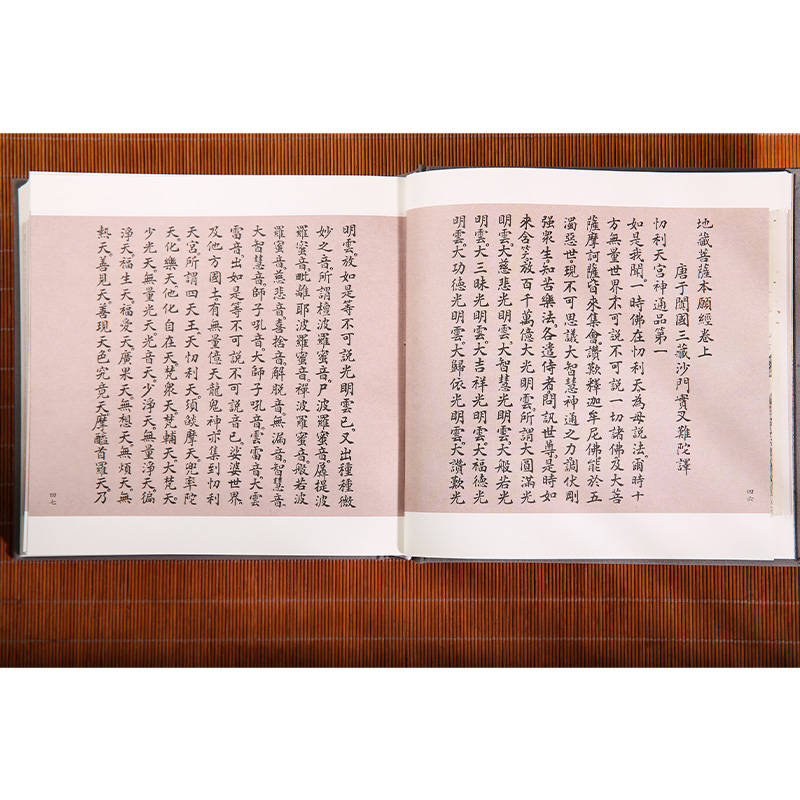 地藏菩薩本願經卷上
唐于闐國三藏沙門實叉難陀譯
忉利天宮神通品第一
如是我聞一時佛在忉利天為母說法。爾時十
方無量世界不可說不可說一切諸佛及大菩
薩摩訶薩皆來集會讚歎釋迦牟尼佛能於五
濁惡世。現不可思議大智慧神通之力調伏剛
強衆生。知苦樂法。各遣侍者問訊世尊。是時如
來含笑放百千萬億大光明雲。所謂大圓滿光
明雲。大慈悲光明雲。大智慧光明雲。大般若光
明雲。大三昧光明雲。大吉祥光明雲。大福德光
明雲。大功德光明雲。大歸依光明雲。大讚歎光
四六
明雲。放如是等不可說光明雲已。又出種種微
妙之音。所謂檀波羅蜜音。尸波羅蜜音。羼提波
羅蜜音。毗離耶波羅蜜音。禪波羅蜜音。般若波
羅蜜音。慈悲音。喜捨音。解脫音。無漏音。智慧音。
大智慧音。師子吼音。大師子吼音。雲雷音。大雲
雷音。出如是等不可說不可說音已。娑婆世界。
及他方國土。有無量億天龍鬼神。亦集到忉利
天宮。所謂四天王天。忉利天。須燄摩天。兜率陀
天。化樂天。他化自在天。梵衆天。梵輔天。大梵天。
少光天。無量光天。光音天。少淨天。無量淨天。徧
淨天。福生天。福愛天。廣果天。無想天。無煩天。無
熱天。善見天。善現天。色究竟天。摩醯首羅天。乃
四七